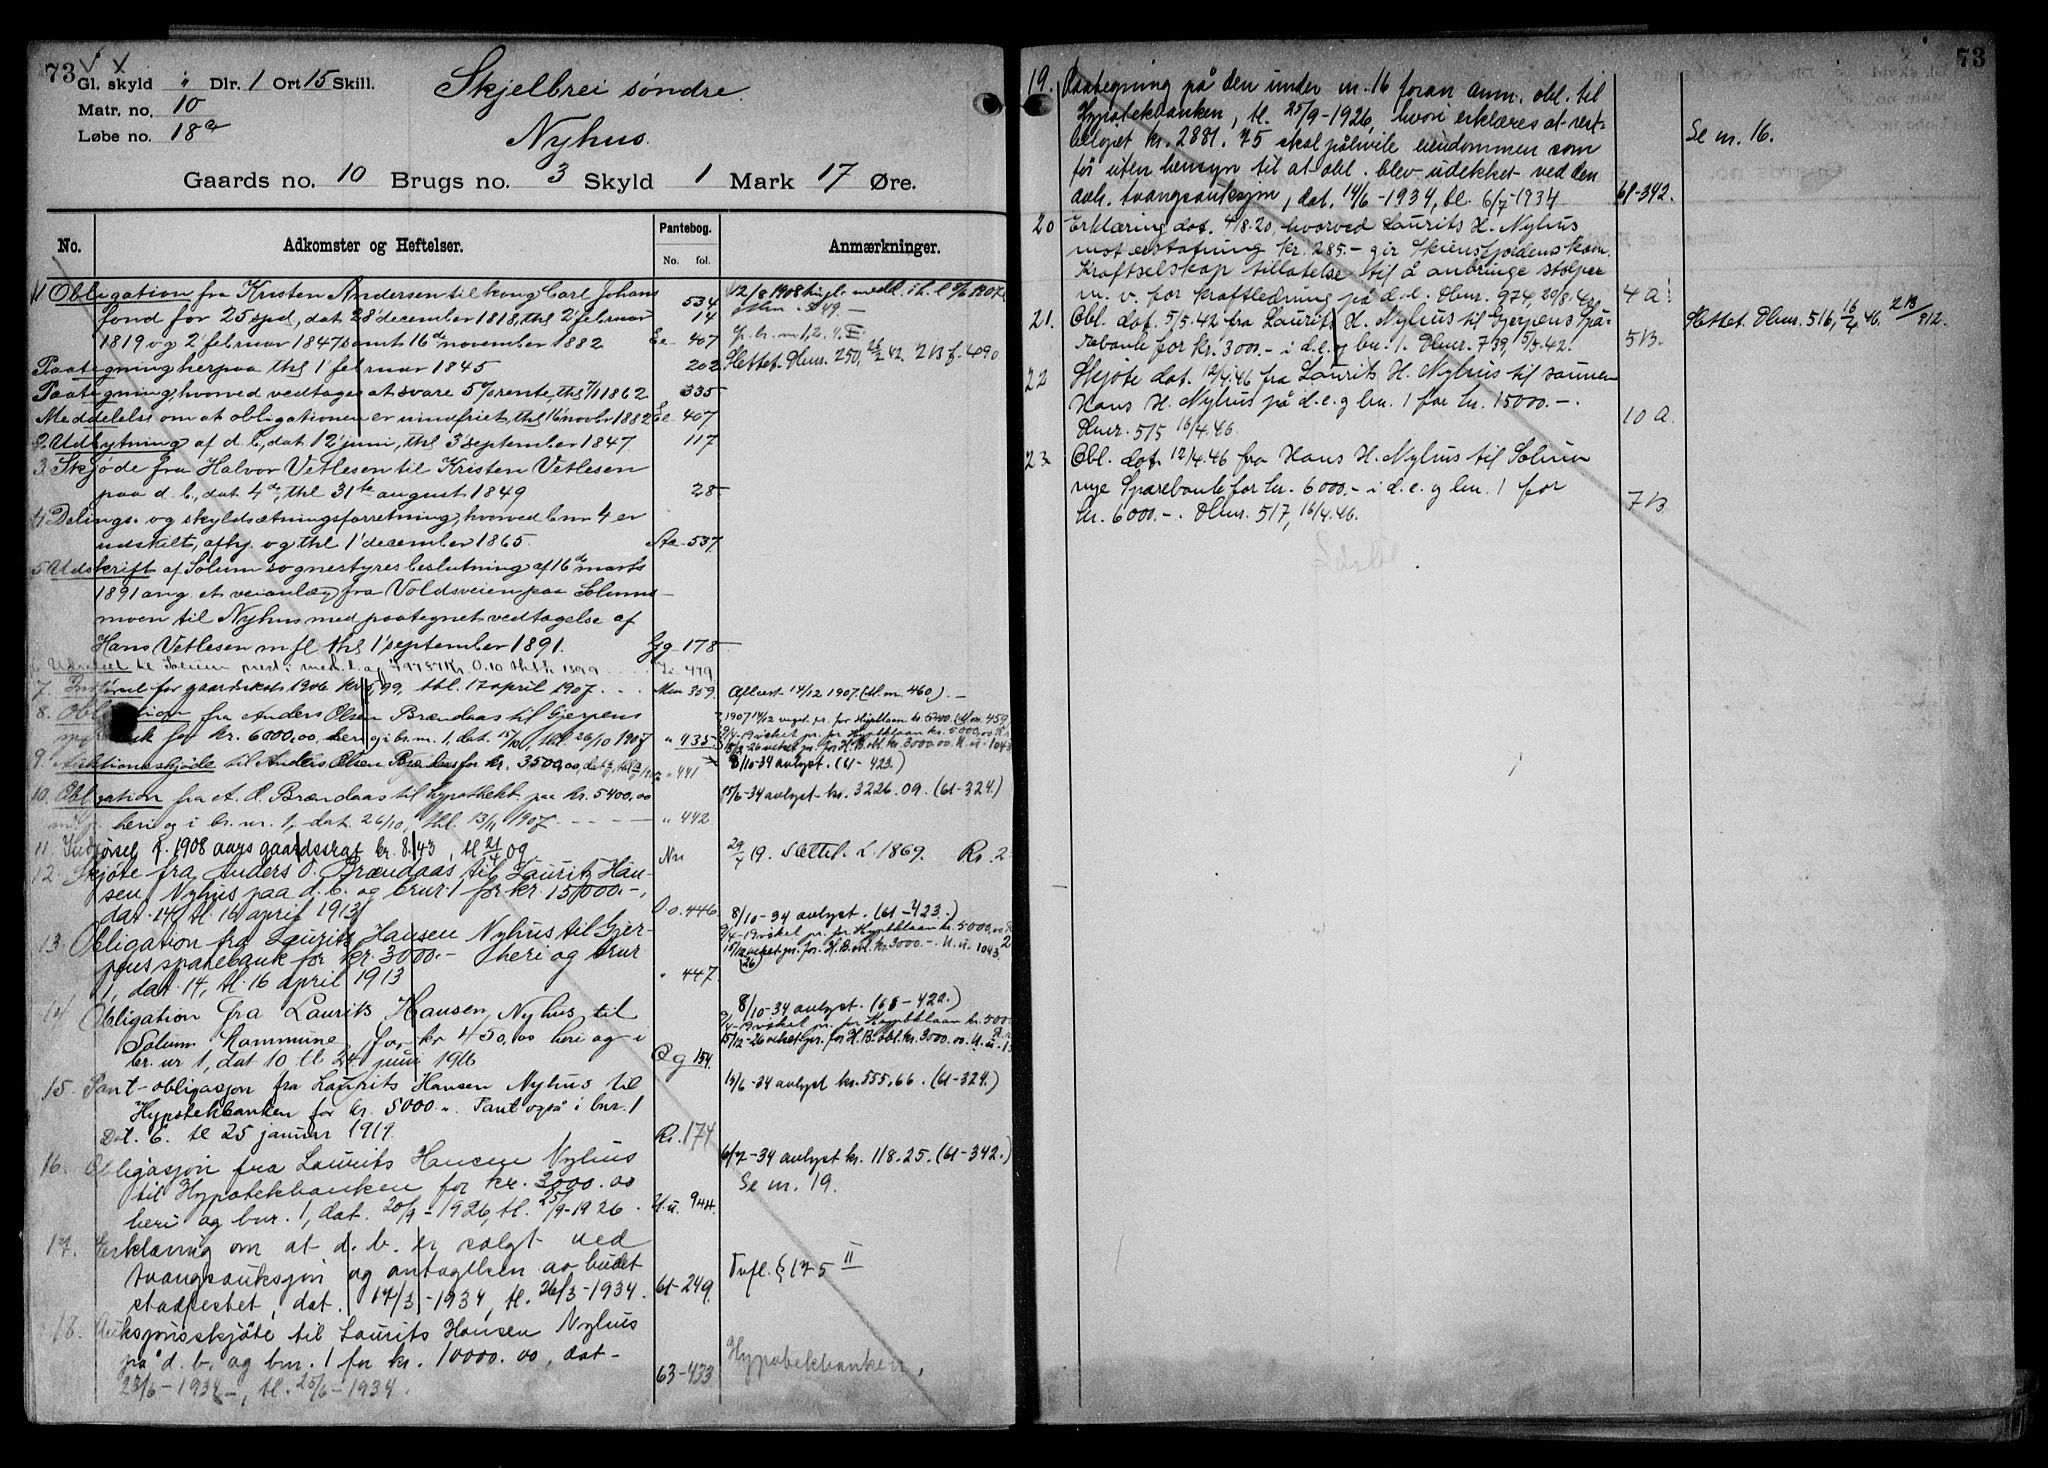 73 V X
Gl. skyld " Dlr. 1 Ort 15 Skill.
Matr. no. 10
Løbe no. 18a
Skjelbrei søndre.
Nyhus.
Gaards no. 10 Brugs no. 3 Skyld 1 Mark 17 Øre.
No. Adkomster og Heftelser. Pantebog. No. fol. Anmærkninger.
1. Obligation fra Kristen Andersen til kong Carl Johans 534
fond for 25 spd, dat 28 december 1818, thl 2 februar 14
1819 og 2 februar 1847 samt 16de november 1882 Ee 407
Paategning herpaa thl 1 februar 1845 202
Paategning, hvorved vedtages at svare 5% rente, thl 1862 335
Meddelelse om at obligationen er uindfriet, thl 16 novbr 1882 Ee 407
2. Udbytning af d. b., dat 12 juni, thl 3 september 1847 117
3. Skjøde fra Halvor Vetlesen til Kristen Vetlesen
paa d. b., dat. 4de, thl 31te august 1849 28
4. Delings- og skyldsætningsforretning, hvorved bnr 4 er
udskilt, afhj. og thl 1 december 1865. Aa 537
5. Udskrift af Solum sognestyres beslutning af 16de marts
1891 ang. et veianlæg fra Voldsveien paa Solum-
moen til Nyhus med paategnet vedtagelse af
Hans Vetlesen m. fl. thl 1 september 1891. Gg 178
479
7. Indførsel for gaardskat 1906 kr 5,99, thl. 17 april 1907. Mm 359.
8. Obligation fra Anders Olsen Brændaas til Gjerpens
sparebank for kr. 6000,00, heri og i br. nr. 1, dat. 15/10, thl. 26/10 1907 " 435
9. Auktionsskjøde til Anders Olsen Brændaas for kr. 3500,00, " 441
10. Obligation fra A. O. Brændaas til Hypothekb. paa kr. 5400,00
heri og i br. nr. 1, dat. 26/10, thl. 13/11 1907 " 442
11. Indførsel f. 1908 aars gaardsskat kr. 8.43, tl 21/4 09 Nn
12. Skjøte fra Anders O. Brændaas til Lauritz Han-
sen Nyhus paa d. b. og brnr 1 for kr. 15000.-,
dat. 14, tl. 16 april 1913 Oo. 446.
13. Obligation fra Laurits Hansen Nyhus til Gjer-
pens sparebank for kr. 3000.- heri og brnr
1, dat. 14, tl. 16 april 1913 " 447.
14. Obligation fra Laurits Hansen Nyhus til
Solum Kommune for kr 450,00 heri og i
br. nr 1, dat 10 tl 24 juni 1916 Qq 154.
15. Pant-obligasjon fra Laurits Hansen Nyhus til
Hypotekbanken for kr. 5000.-. Pant også i bnr. 1
Dat. 6. tl 25 januar 1919. Rr. 174
16. Obligasjon fra Laurits Hansen Nyhus
til Hypotekbanken for kr. 3000.00
heri og bnr. 1, dat. 20/9-1926, tl. 25/9-1926. U.u. 944.
17. Erklæring om at d. b. er solgt ved
tvangsauksjon og antagelsen av budet
stadfestet, dat. 17/3-1934, tl. 26/3-1934. 61-249.
18. Auksjonsskjøte til Laurits Hansen Nyhus
på d. b. og bnr. 1 for kr. 10000.00, dat-
23/6-1934-, tl. 25/6-1934. 63-433
Slettet. Dbnr. 250, 26/2 42. 2B f. 490
Avlæst 14/12 1907. (tl. nr. 460). -
8/10-34 avlyst. (61-423.)
15/6-34 avlyst kr. 3226.09. (61-324.)
29/7 19. Slettet. L. 1869. Rr. 2
8/10-34 avlyst. (61-423.)
9/4-19 veket pr. for Hypotklaan kr. 5000,00
8/10-34 avlyst. (61-422.)
9/4-19 veket pr. for Hypotklaan kr. 5000
15/12-26 veket pr. for H. B. obl. kr. 3000.00. U. u.
15/6-34 avlyst kr. 555,66. (61-324.)
6/7-34 avlyst kr. 118.25. (61-342.)
Se nr. 19.
Tvfl. § 175 II
Hypotekbanken,
73
19. Paategning på den under nr. 16 foran anm. obl. til
Hypotekbanken, tl. 25/9-1926, hvori erklæres at rest-
beløpet kr. 2881.75 skal påhvile eiendommen som
før uten hensyn til at obl. blev udekket ved den
avh. tvangsauksjon, dat. 14/6-1934, tl. 6/7-1934 61-342.
Se nr. 16.
20 Erklæring dat. 4/8.20, hvorved Laurits H. Nyhus
mot erstatning kr. 285.- gir Skiensfjordens kom.
Kraftselskap tillatelse til å anbringe stolper
m. v. for kraftledning på d. e. Dbnr. 974, 29/8.42. 4 A
21. Obl. dat. 5/5.42 fra Laurits H. Nyhus til Gjerpens Spa-
rebank for kr. 3000.- i d. e. og bnr. 1. Dbnr. 739, 15/5.42. 5 B.
Slettet. Dbnr. 516, 16/4 46. 2B/812.
22 Skjøte dat. 12/4.46 fra Laurits H. Nyhus til sønnen
Hans H. Nyhus på d. e. og bnr. 1 for kr. 15000.-.
Dbnr. 515 16/4.46. 10 A.
23 Obl. dat. 12/4.46 fra Hans H. Nyhus til Solum
nye Sparebank for kr. 6000.- i d. e. og bnr. 1 for
kr. 6000.-. Dbnr. 517, 16/4.46. 7B.